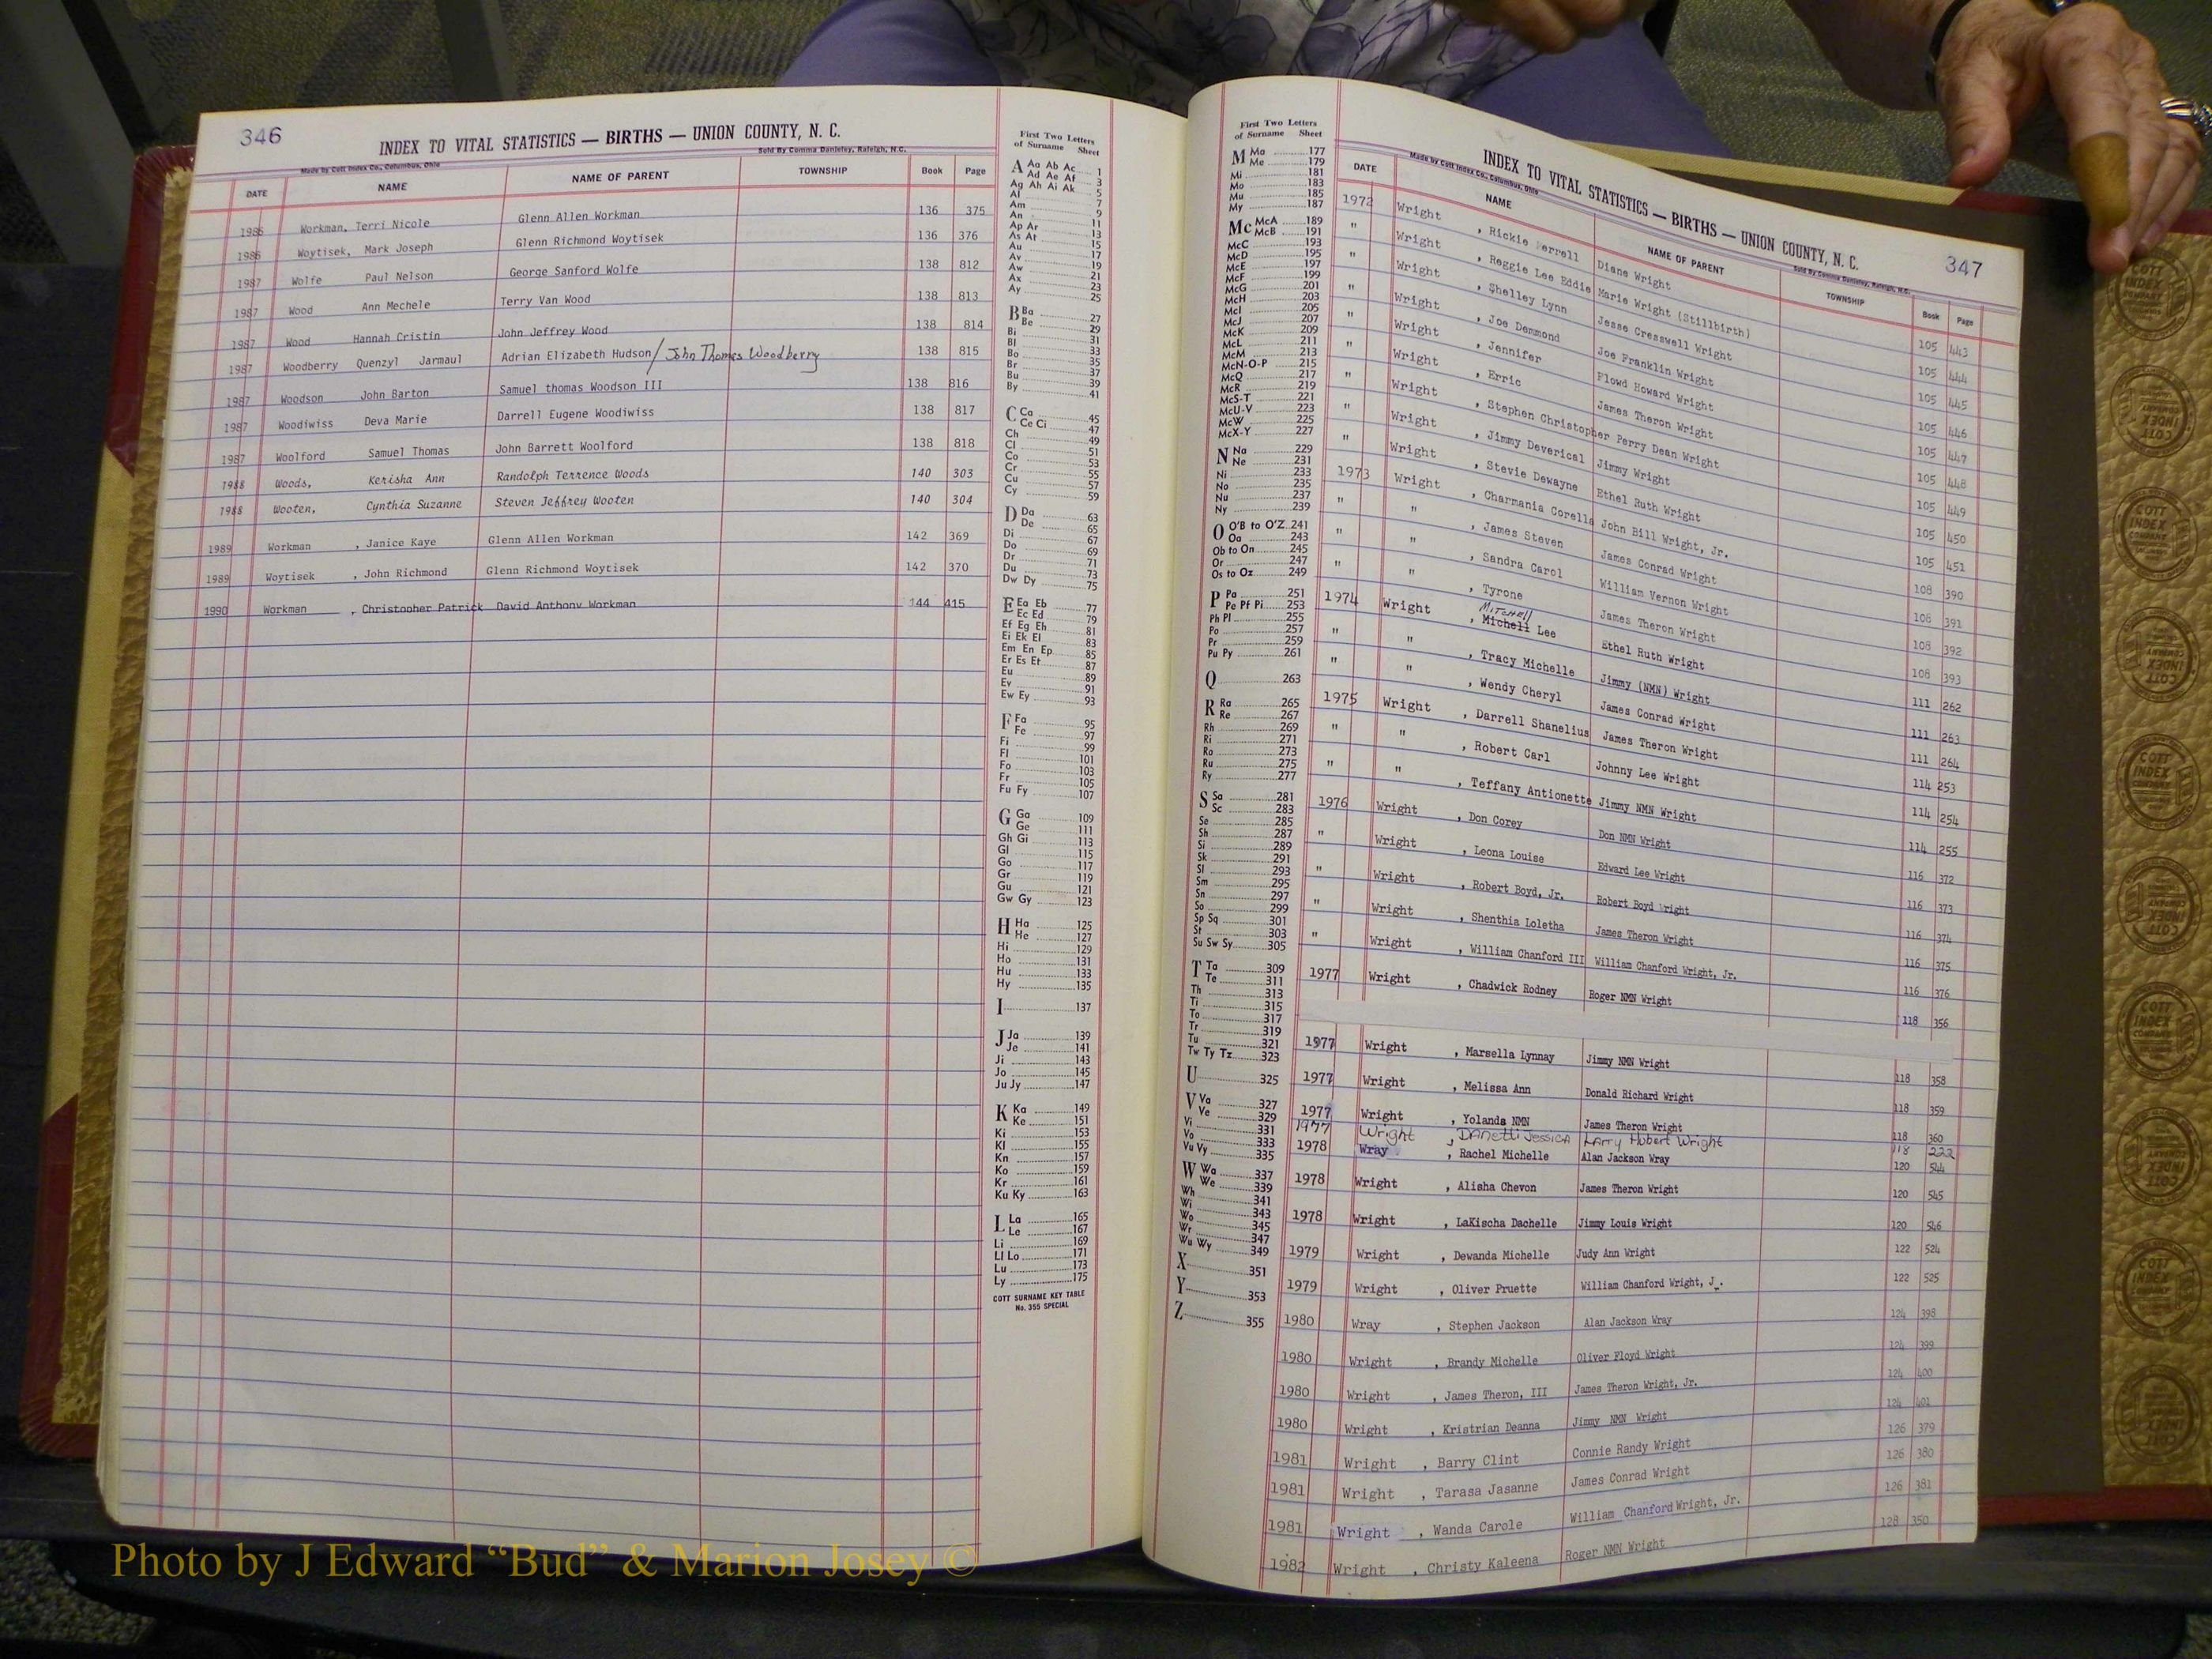 346
INDEX TO VITAL STATISTICS — BIRTHS — UNION COUNTY, N. C.
Made by Cott Index Co., Columbus, Ohio Sold By Comma Danieley, Raleigh, N.C.
DATE NAME NAME OF PARENT TOWNSHIP Book Page
1986 Workman, Terri Nicole Glenn Allen Workman 136 375
1986 Woytisek, Mark Joseph Glenn Richmond Woytisek 136 376
1987 Wolfe Paul Nelson George Sanford Wolfe 138 812
1987 Wood Ann Mechele Terry Van Wood 138 813
1987 Wood Hannah Cristin John Jeffrey Wood 138 814
1987 Woodberry Quenzyl Jarmaul Adrian Elizabeth Hudson / John Thomas Woodberry 138 815
1987 Woodson John Barton Samuel thomas Woodson III 138 816
1987 Woodiwiss Deva Marie Darrell Eugene Woodiwiss 138 817
1987 Woolford Samuel Thomas John Barrett Woolford 138 818
1988 Woods, Kerisha Ann Randolph Terrence Woods 140 303
1988 Wooten, Cynthia Suzanne Steven Jeffrey Wooten 140 304
1989 Workman , Janice Kaye Glenn Allen Workman 142 369
1989 Woytisek , John Richmond Glenn Richmond Woytisek 142 370
1990 Workman , Christopher Patrick David Anthony Workman 144 415
First Two Letters
of Surname Sheet
A Aa Ab Ac 1
Ad Ae Af 3
Ag Ah Ai Ak 5
Al 7
Am 9
An 11
Ap Ar 13
As At 15
Au 17
Av 19
Aw 21
Ax 23
Ay 25
B Ba 27
Be 29
Bi 31
Bl 33
Bo 35
Br 37
Bu 39
By 41
C Ca 45
Ce Ci 47
Ch 49
Cl 51
Co 53
Cr 55
Cu 57
Cy 59
D Da 63
De 65
Di 67
Do 69
Dr 71
Du 73
Dw Dy 75
E Ea Eb 77
Ec Ed 79
Ef Eg Eh 81
Ei Ek El 83
Em En Ep 85
Er Es Et 87
Eu 89
Ev 91
Ew Ey 93
F Fa 95
Fe 97
Fi 99
Fl 101
Fo 103
Fr 105
Fu Fy 107
G Ga 109
Ge 111
Gh Gi 113
Gl 115
Go 117
Gr 119
Gu 121
Gw Gy 123
H Ha 125
He 127
Hi 129
Ho 131
Hu 133
Hy 135
I 137
J Ja 139
Je 141
Ji 143
Jo 145
Ju Jy 147
K Ka 149
Ke 151
Ki 153
Kl 155
Kn 157
Ko 159
Kr 161
Ku Ky 163
L La 165
Le 167
Li 169
Ll Lo 171
Lu 173
Ly 175
COTT SURNAME KEY TABLE
No. 355 SPECIAL
First Two Letters
of Surname Sheet
M Ma 177
Me 179
Mi 181
Mo 183
Mu 185
My 187
Mc McA 189
McB 191
McC 193
McD 195
McE 197
McF 199
McG 201
McH 203
McI 205
McJ 207
McK 209
McL 211
McM 213
McN-O-P 215
McQ 217
McR 219
McS-T 221
McU-V 223
McW 225
McX-Y 227
N Na 229
Ne 231
Ni 233
No 235
Nu 237
Ny 239
O O'B to O'Z 241
Oa 243
Ob to On 245
Or 247
Os to Oz 249
P Pa 251
Pe Pf Pi 253
Ph Pl 255
Po 257
Pr 259
Pu Py 261
Q 263
R Ra 265
Re 267
Rh 269
Ri 271
Ro 273
Ru 275
Ry 277
S Sa 281
Sc 283
Se 285
Sh 287
Si 289
Sk 291
Sl 293
Sm 295
Sn 297
So 299
Sp Sq 301
St 303
Su Sw Sy 305
T Ta 309
Te 311
Th 313
Ti 315
To 317
Tr 319
Tu 321
Tw Ty Tz 323
U 325
V Va 327
Ve 329
Vi 331
Vo 333
Vu Vy 335
W Wa 337
We 339
Wh 341
Wi 343
Wo 345
Wr 347
Wu Wy 349
X 351
Y 353
Z 355
347
INDEX TO VITAL STATISTICS — BIRTHS — UNION COUNTY, N. C.
Made by Cott Index Co., Columbus, Ohio Sold By Comma Danieley, Raleigh, N.C.
DATE NAME NAME OF PARENT TOWNSHIP Book Page
1972 Wright , Rickie Diane Wright 105 443
" Wright , Reggie Lee Eddie Marie Wright (Stillbirth) 105 444
" Wright , Shelley Lynn Jesse Cresswell Wright 105 445
" Wright , Joe Demmond Joe Franklin Wright 105 446
" Wright , Jennifer Floyd Howard Wright 105 447
" Wright , Erric James Theron Wright 105 448
" Wright , Stephen Christopher Perry Dean Wright 105 449
" Wright , Jimmy Deverical Jimmy Wright 105 450
" Wright , Stevie Dewayne Ethel Ruth Wright 105 451
1973 Wright , Charmania Corella John Bill Wright, Jr. 108 390
" " , James Steven James Conrad Wright 108 391
" " , Sandra Carol William Vernon Wright 108 392
" " , Tyrone James Theron Wright 108 393
MITCHELL
1974 Wright , Michell Lee Ethel Ruth Wright 111 262
" " , Tracy Michelle Jimmy (NMN) Wright 111 263
" " , Wendy Cheryl James Conrad Wright 111 264
1975 Wright , Darrell Shanelius James Theron Wright 114 253
" " , Robert Carl Johnny Lee Wright 114 254
" " , Teffany Antionette Jimmy NMN Wright 114 255
1976 Wright , Don Corey Don NMN Wright 116 372
" Wright , Leona Louise Edward Lee Wright 116 373
" Wright , Robert Boyd, Jr. Robert Boyd Wright 116 374
" Wright , Shenthia Loletha James Theron Wright 116 375
" Wright , William Chanford III William Chanford Wright, Jr. 116 376
1977 Wright , Chadwick Rodney Roger NMN Wright 118 356
1977 Wright , Marsella Lynnay Jimmy NMN Wright 118 358
1977 Wright , Melissa Ann Donald Richard Wright 118 359
1977 Wright , Yolanda NMN James Theron Wright 118 360
1977 Wright , DANetti JESSICA LArry Hubert Wright 118 222
1978 Wray , Rachel Michelle Alan Jackson Wray 120 544
1978 Wright , Alisha Chevon James Theron Wright 120 545
1978 Wright , LaKischa Dachelle Jimmy Louis Wright 120 546
1979 Wright , Dewanda Michelle Judy Ann Wright 122 524
1979 Wright , Oliver Pruette William Chanford Wright, J. 122 525
1980 Wray , Stephen Jackson Alan Jackson Wray 124 398
1980 Wright , Brandy Michelle Oliver Floyd Wright 124 399
1980 Wright , James Theron, III James Theron Wright, Jr. 124 400
1980 Wright , Kristrian Deanna Jimmy NMN Wright 124 401
1981 Wright , Barry Clint Connie Randy Wright 126 379
1981 Wright , Tarasa Jasanne James Conrad Wright 126 380
1981 Wright , Wanda Carole William Chanford Wright, Jr. 126 381
1982 Wright , Christy Kaleena Roger NMN Wright 128 350
COTT
INDEX
COMPANY
Photo by J Edward “Bud” & Marion Josey ©